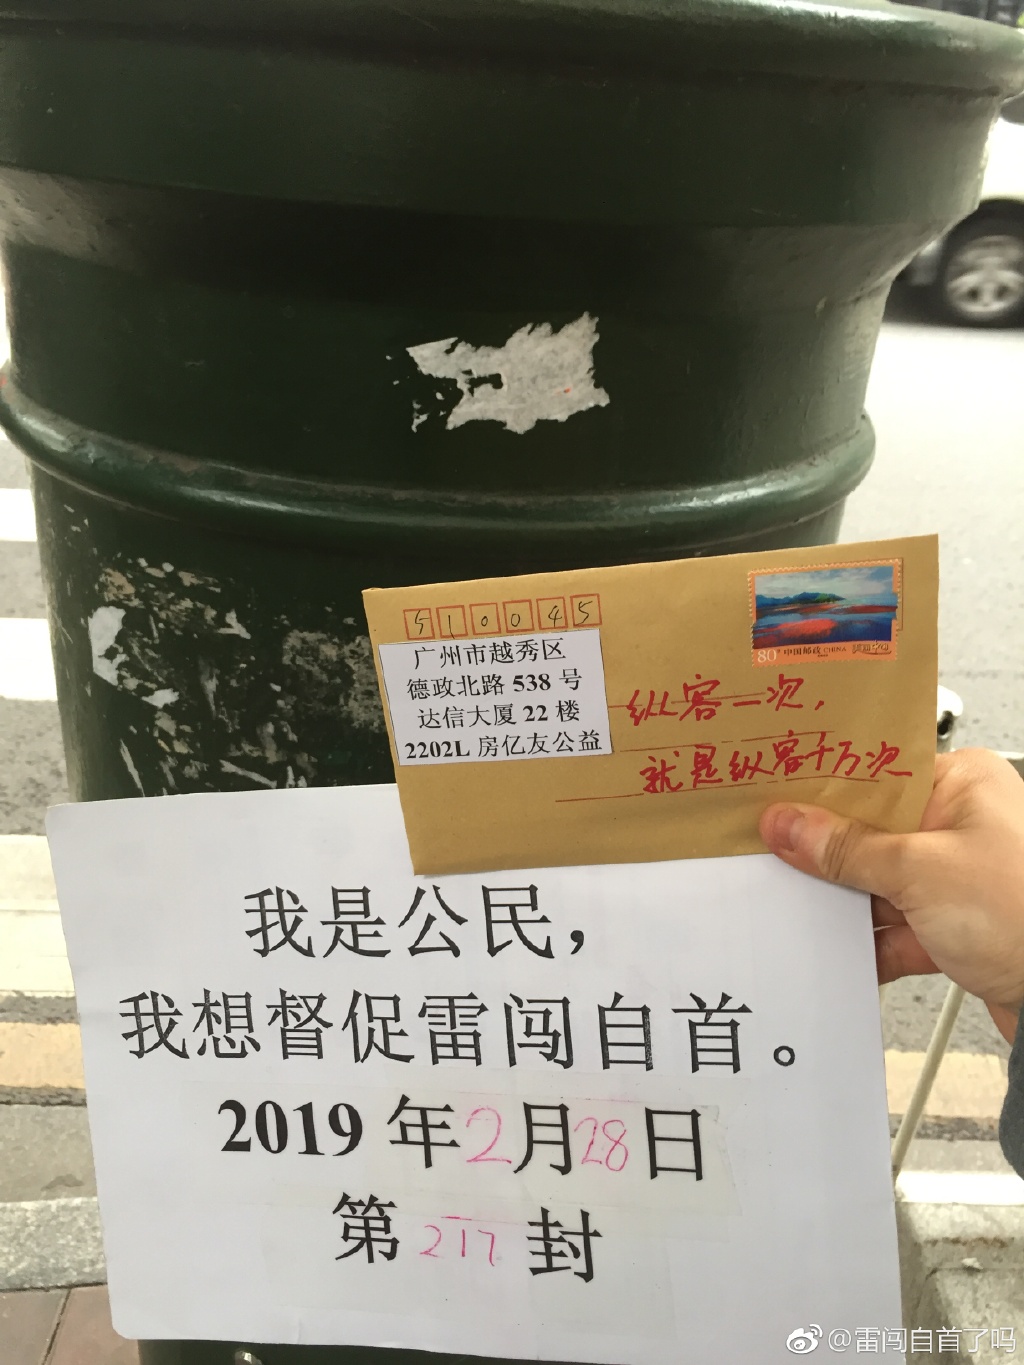 510045
广州市越秀区
德政北路 538 号
达信大厦 22 楼
2202L 房亿友公益
80分 中国邮政 CHINA
纵容一次,
就是纵容千万次
我是公民,
我想督促雷闯自首。
2019 年 2 月 28 日
第 217 封
@雷闯自首了吗